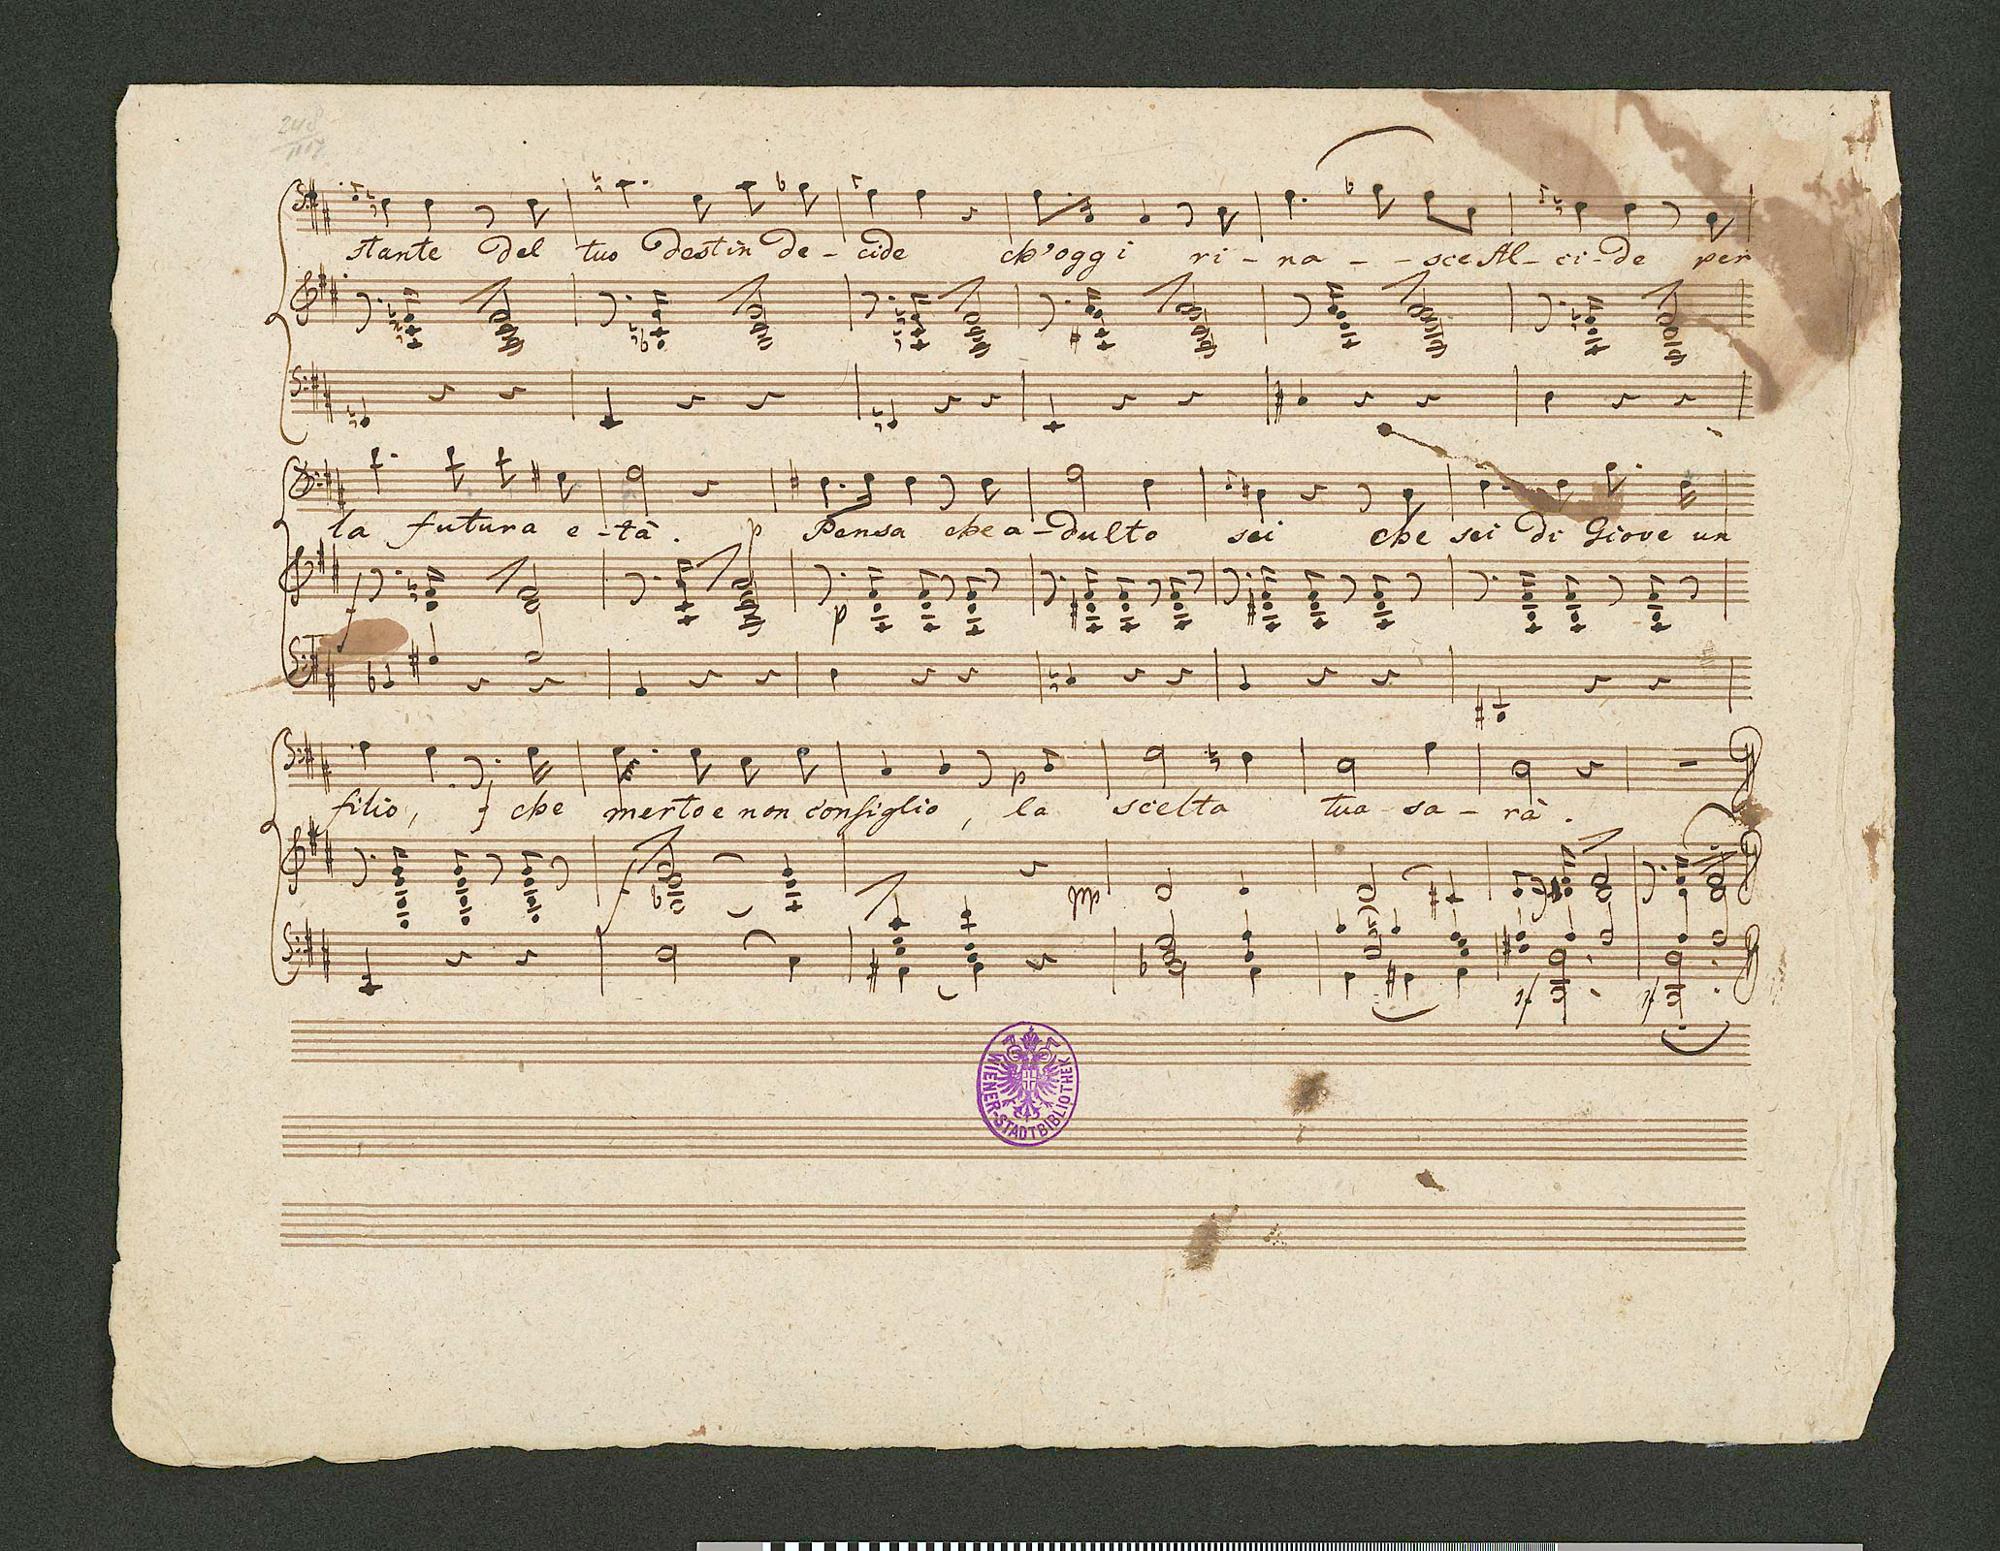 248
stante del tuo destin de - cide ch'oggi ri - na - - sce Al - ci - de per
la futura e - tà . p Pensa che a - dulto sei che sei di Giove un
p
filio, f che merto e non consiglio, p la scelta tua sa - rà .
f
sf sf
WIENER-STADTBIBLIOTHEK